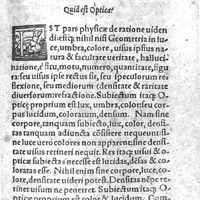 Quid est Opticæ
EST pars physicæ de ratione uiden
di elicita. nihil nisi Geometria in lu
ce, umbra, colore, uisus ipsius na
tura & facultate veritate, halluci
natione, è situ, motu, numero, quantitate, figu
ra, seu uisus ipse rectus sit, seu speculorum re
flexione, seu mediorum densitate & raritate
diuersorum refractione. Subiectum itaq; O
pticæ proprium est lux, umbra, color, seu corpus
lucidum, coloratum, densum. Nam sine
corpore, tanquam subiecto, lux, color, densi
tas tanquam adiuncta consistere nequeunt, si
ne luce verò colores non apparent, sine densi
tate uisus non terminatur. Res itaq; uisus & o
pticæ subiectas necesse est lucidas, desas & co
loratas esse. Nihil enim sine corpore, luce, co
lore, densitate uideri potest. Densitatem nec
uisus penetret. Subiectum itaq; O-
pticæ proprium est color & lucidum. Com